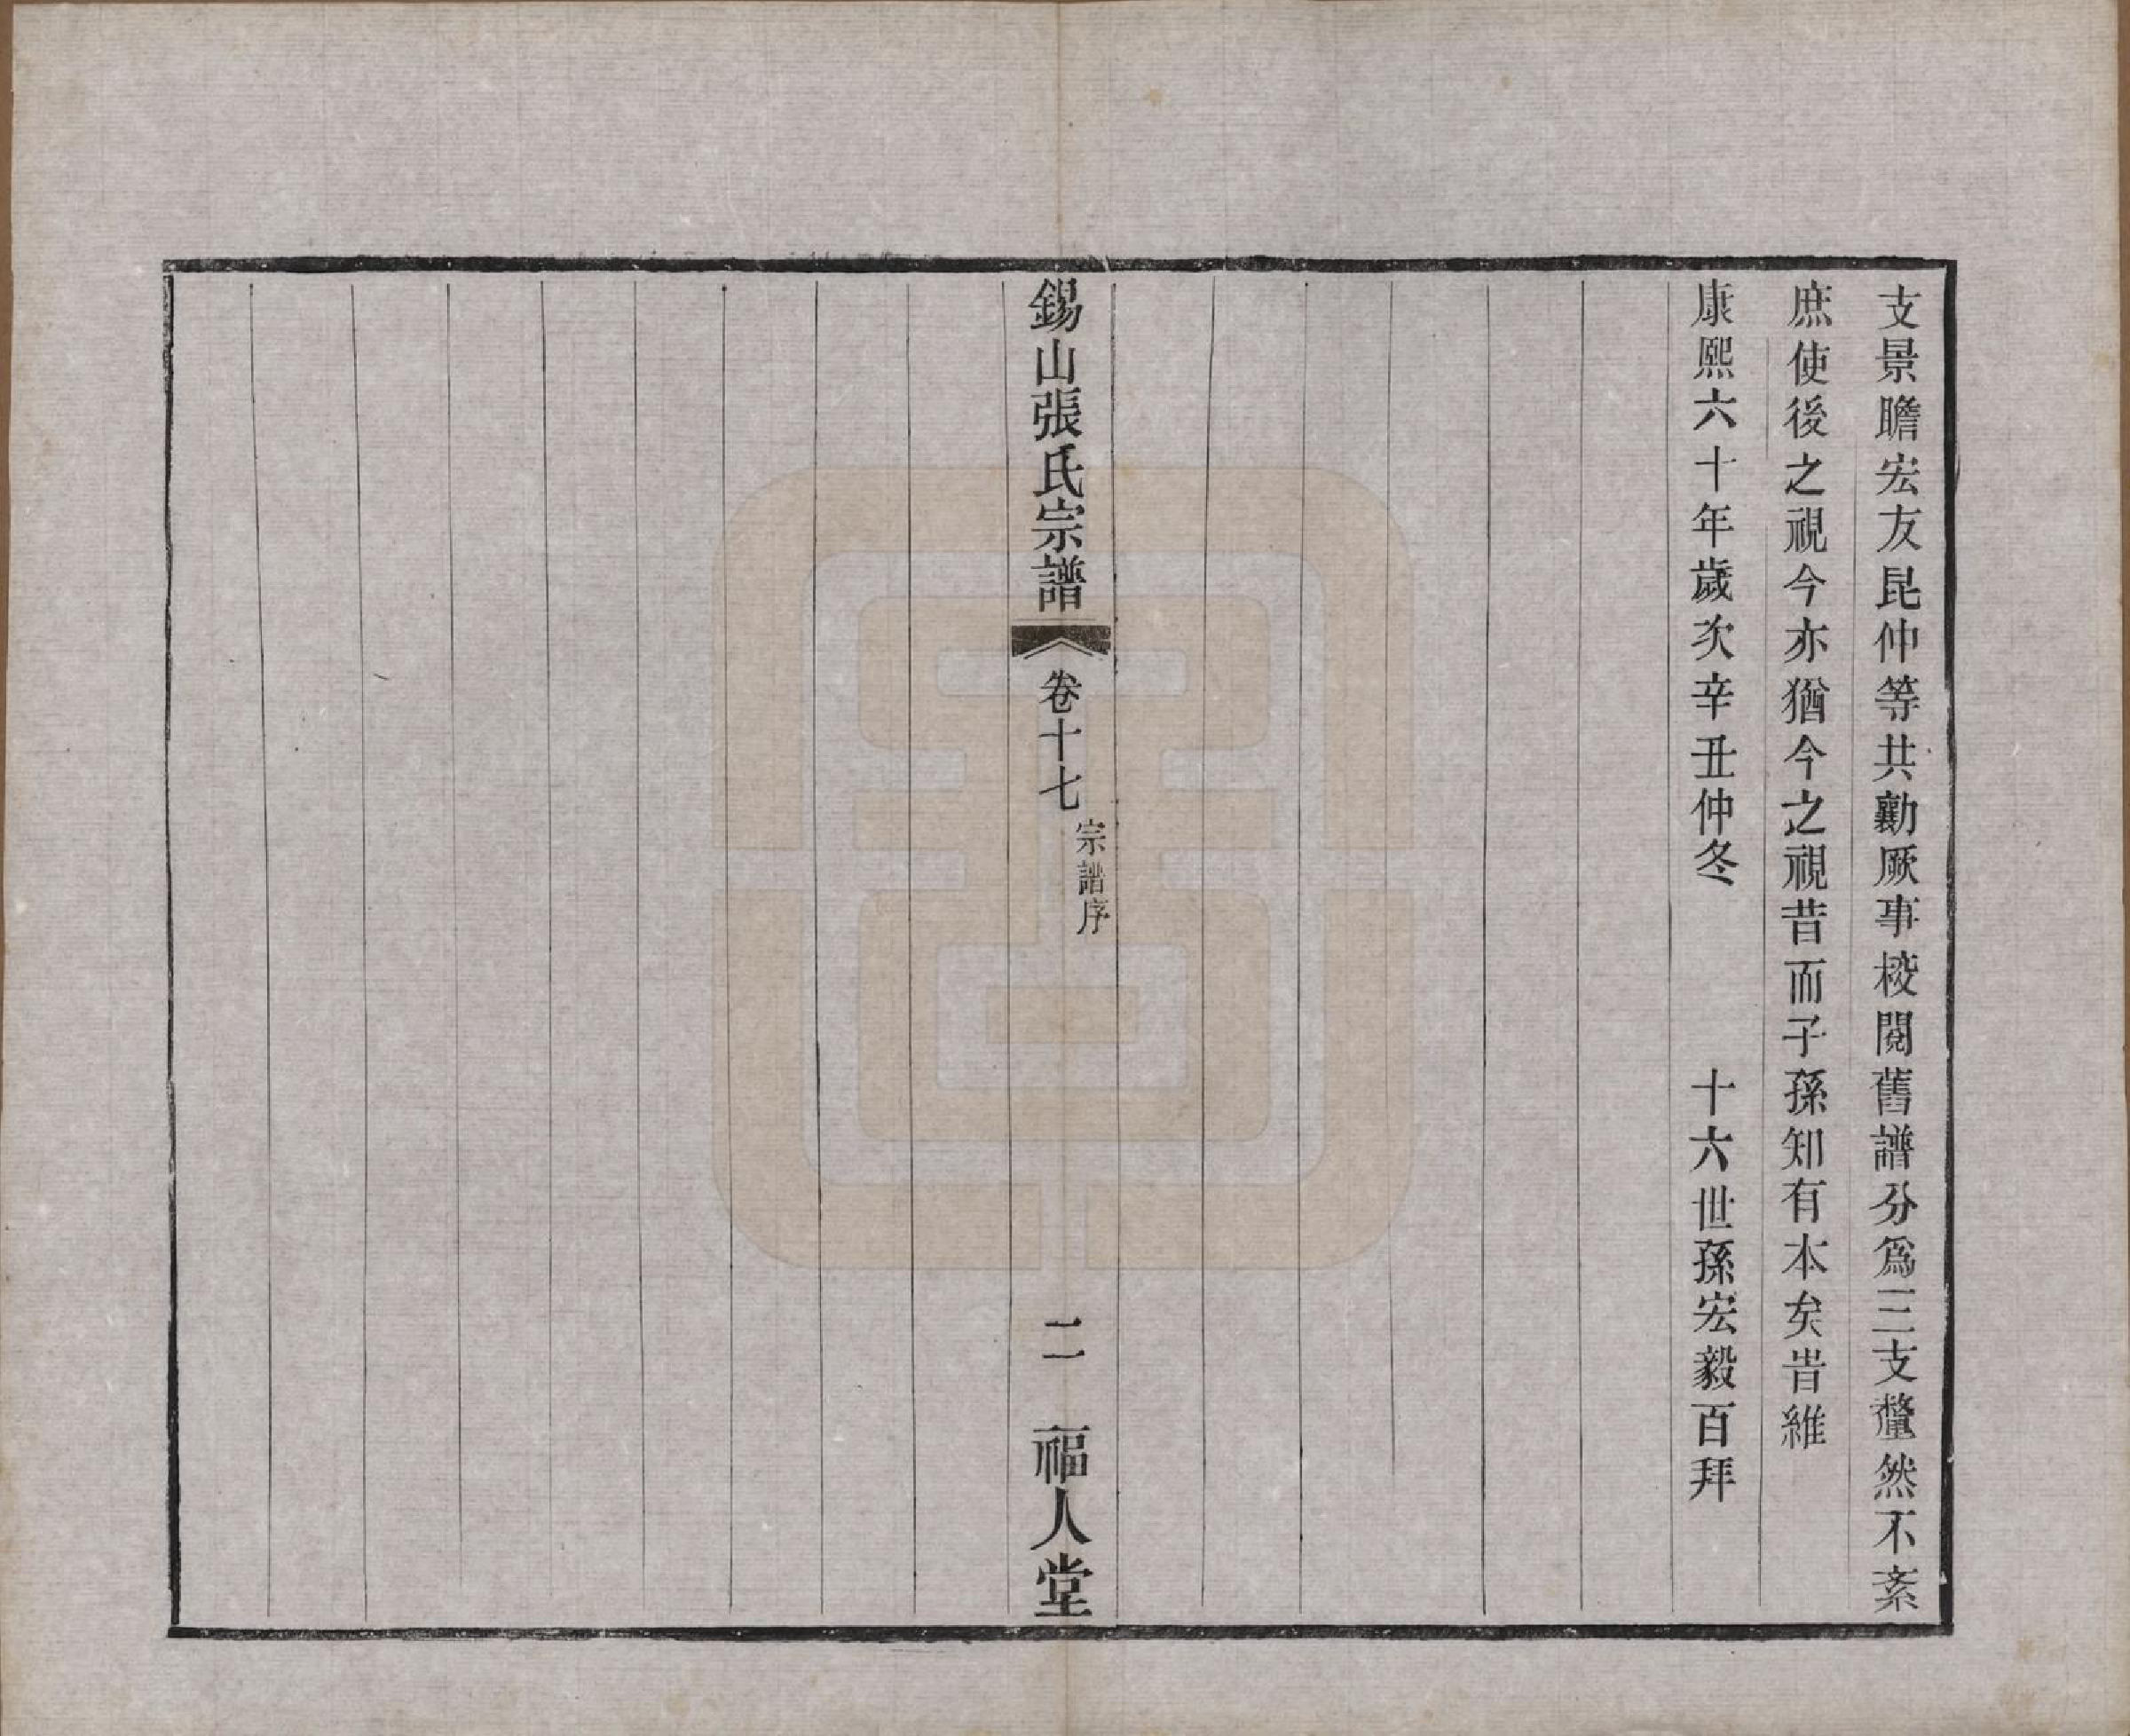 支景瞻宏友昆仲等共勷厥事校閱舊譜分爲三支釐然不紊
庶使後之視今亦猶今之視昔而子孫知有本矣旹維
康熙六十年歲次辛丑仲冬　　　十六世孫宏毅百拜
錫山張氏宗譜　卷十七　宗譜序　二　福人堂